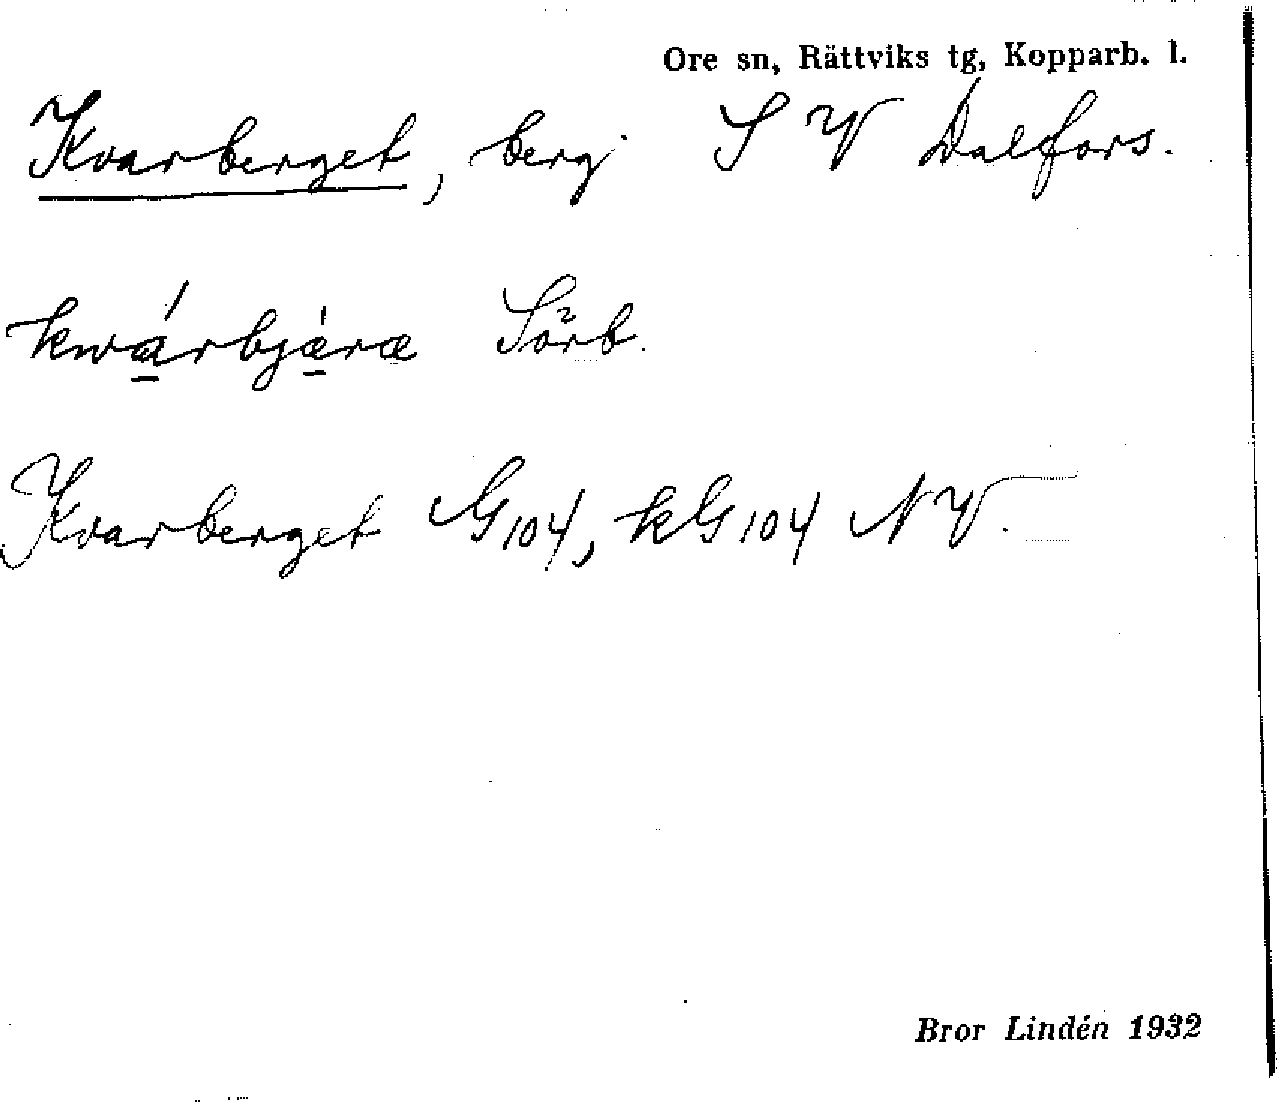 Ore sn, Rättviks tg, Kopparb. l.
Kvarberget, berg S V Dalfors.
kwárbjæræ Sörb.
Kvarberget G104, kG104 NV.
Bror Lindén 1932